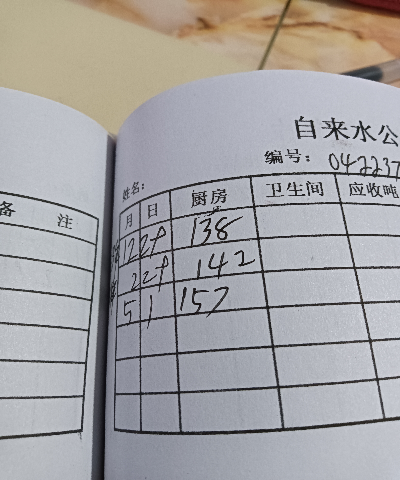 备 注
自来水公
编号: 042237
姓名:
月 日 厨房 卫生间 应收吨
12 29 138
2 27 142
5 1 157